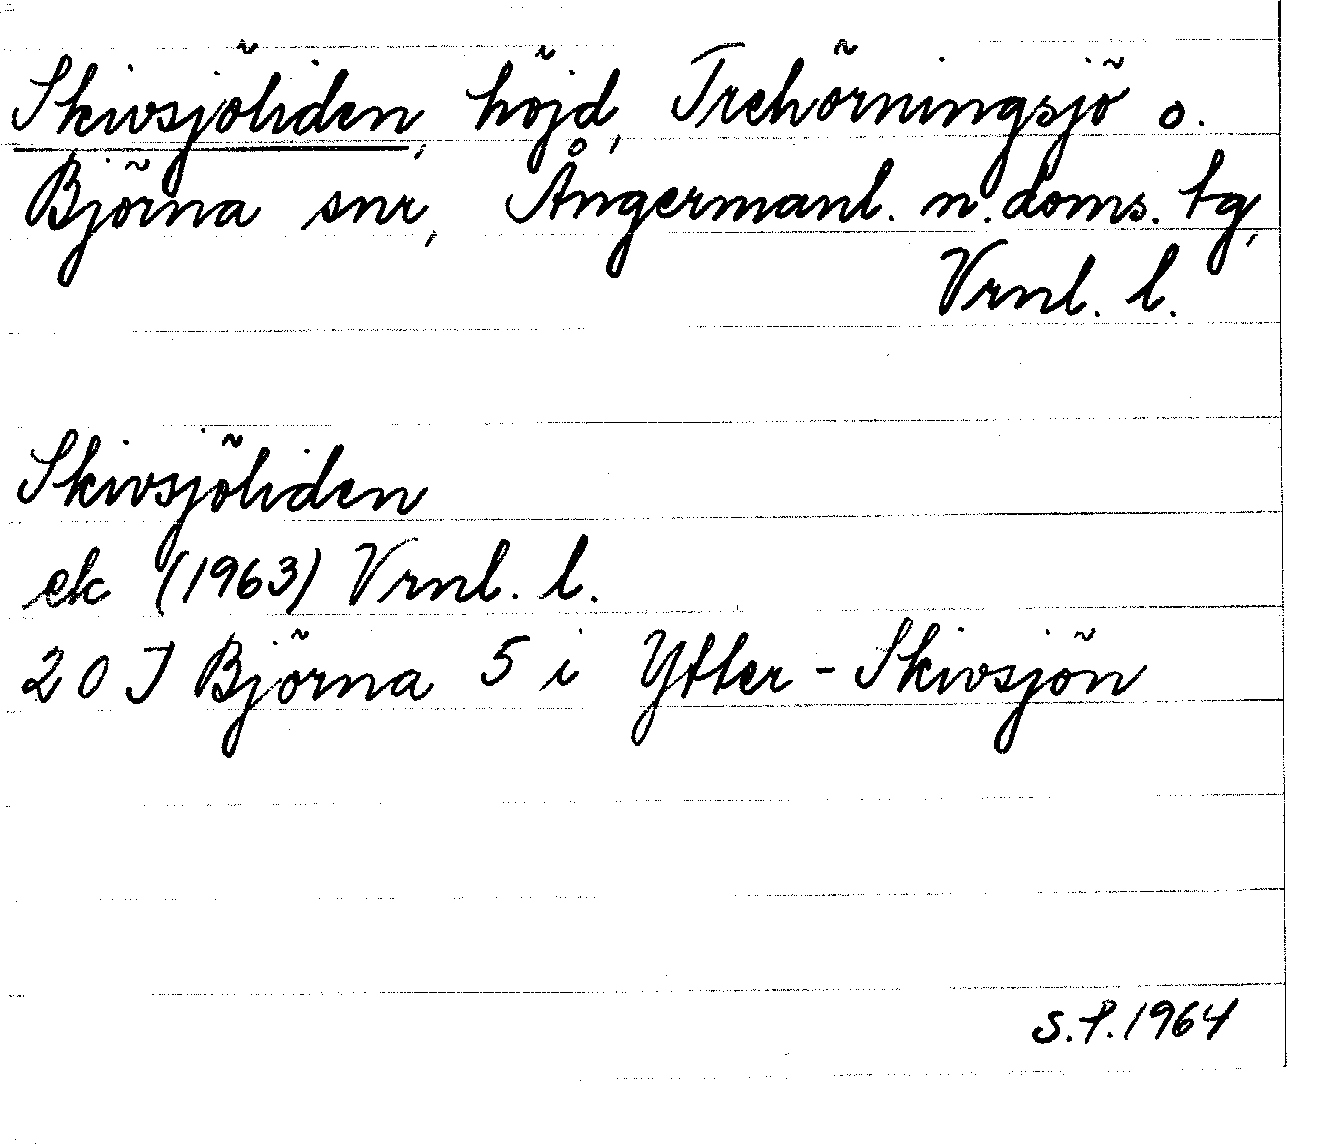 Skivsjöliden, höjd, Trehörningsjö o.
Björna snr, Ångermanl. n. doms. tg,
Vrnl. l.
Skivsjöliden
ek (1963) Vrnl. l.
20 J Björna 5 i Ytter-Skivsjön
S.P. 1964